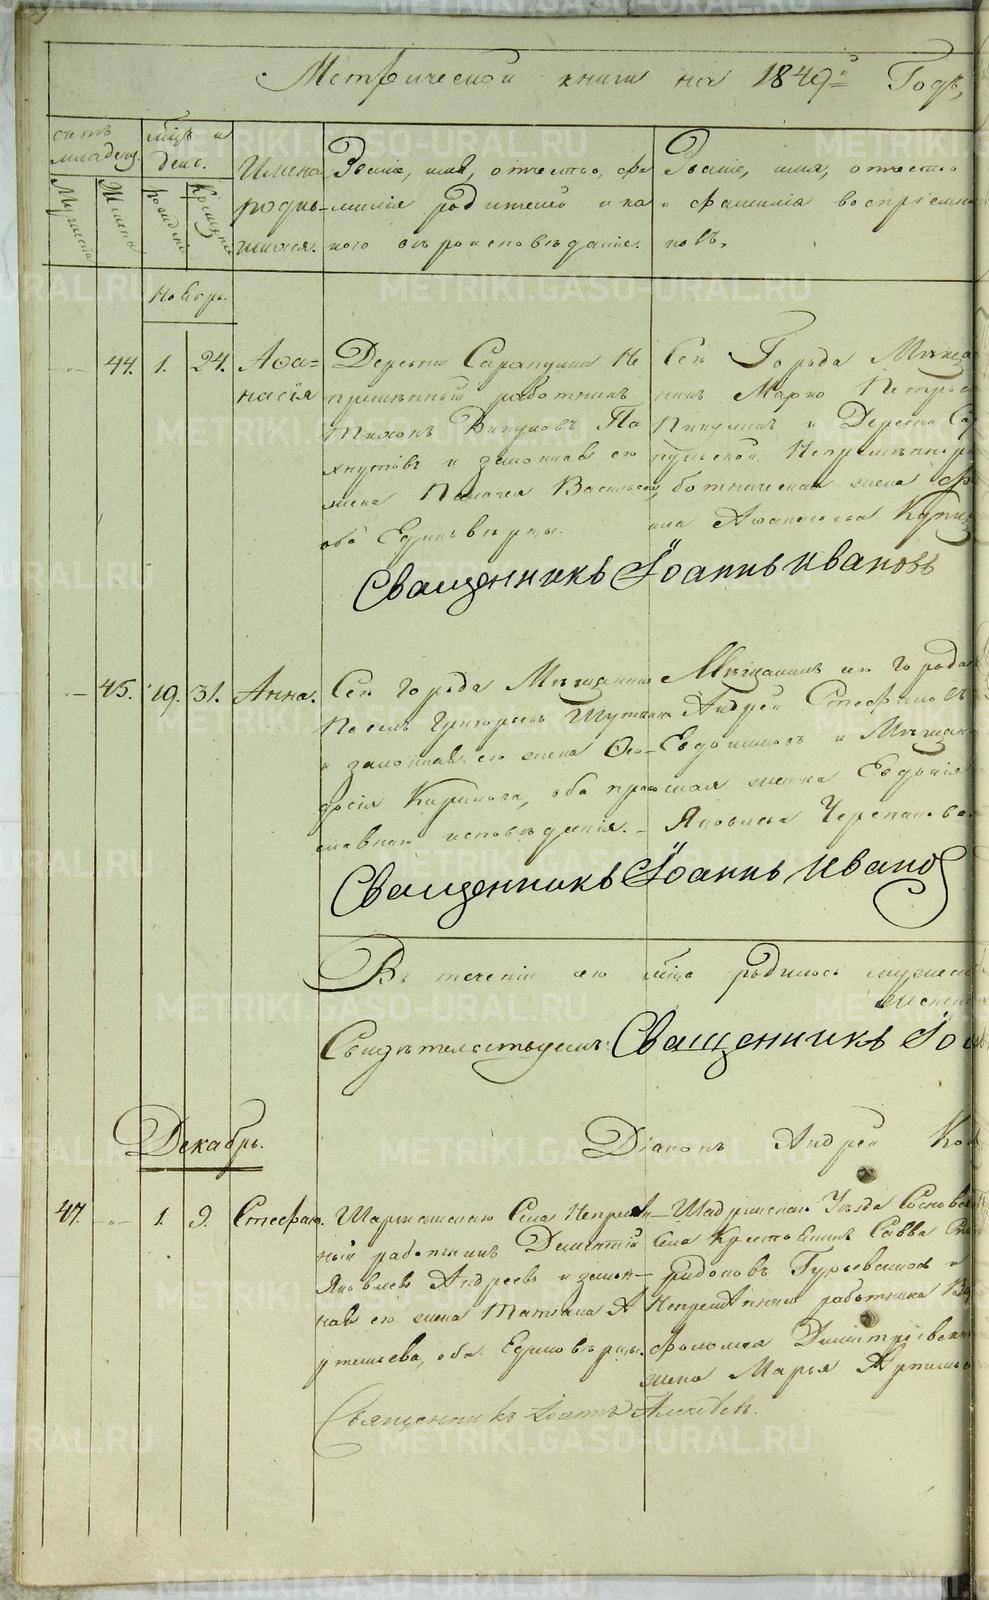 Метрической книги на 1849й Годъ,
счетъ младенц.
Мужеска
Женска
мцъ и денс.
рожден
Крещен
Имена родив-шихся.
Званіе, имя, отчество, фа
милія родителей и ка
кого вѣроисповѣданія.
Званіе, имя, отчество
и фамилія воспріемни
ковъ,
Ноябрь.
44.
1.
24.
Аѳа=
насія
Деревни Сарапулки Не
премѣнный работникъ
Тихонъ Викуловъ Па
хнутовъ и законная его
жена Пелагея Васильева,
оба Единовѣрцы.
Сего Города Мѣща
нинъ Марко Петров
Пикулинъ и Деревни Сар
пульской Непремѣннора
ботническая жена
Аѳанасьева
Священникъ Іоаннъ Ивановъ
45.
19.
31.
Анна.
Сего города Мѣщанинъ
Григорьевъ
и законная его жена Ѳео-
досія Карпова, оба право
славнаго исповѣданія.
Мѣщанинъ сего города
Андрей Стефановъ
Евдокимовъ и Мѣщан
ская женка Евдокія
Яковлева Черепанова
Священникъ Іоаннъ Иванов
Въ теченіи сего мца родилось мужеск
женск
Свидѣтельствуемъ: Священникъ Іоа
Декабрь.
Діаконъ Андрей Кол
47.
1.
9.
Стефанъ.
Шарташскаго Села Непремѣн
ный работникъ Дементій
Яковлевъ Андреевъ и закон-
ная его жена Татіана А
оба Единовѣрцы.
Шадринскаго Уѣзда Сосновск
Села Крестьянинъ Савва Спи
ридоновъ Гурьевыхъ и
Непремѣннаго работника Вар
фоломея Димитріевска
жена Марья Артемьев
Священникъ Іоаннъ Алексѣевъ.
METRIKI.GASO-URAL.RU